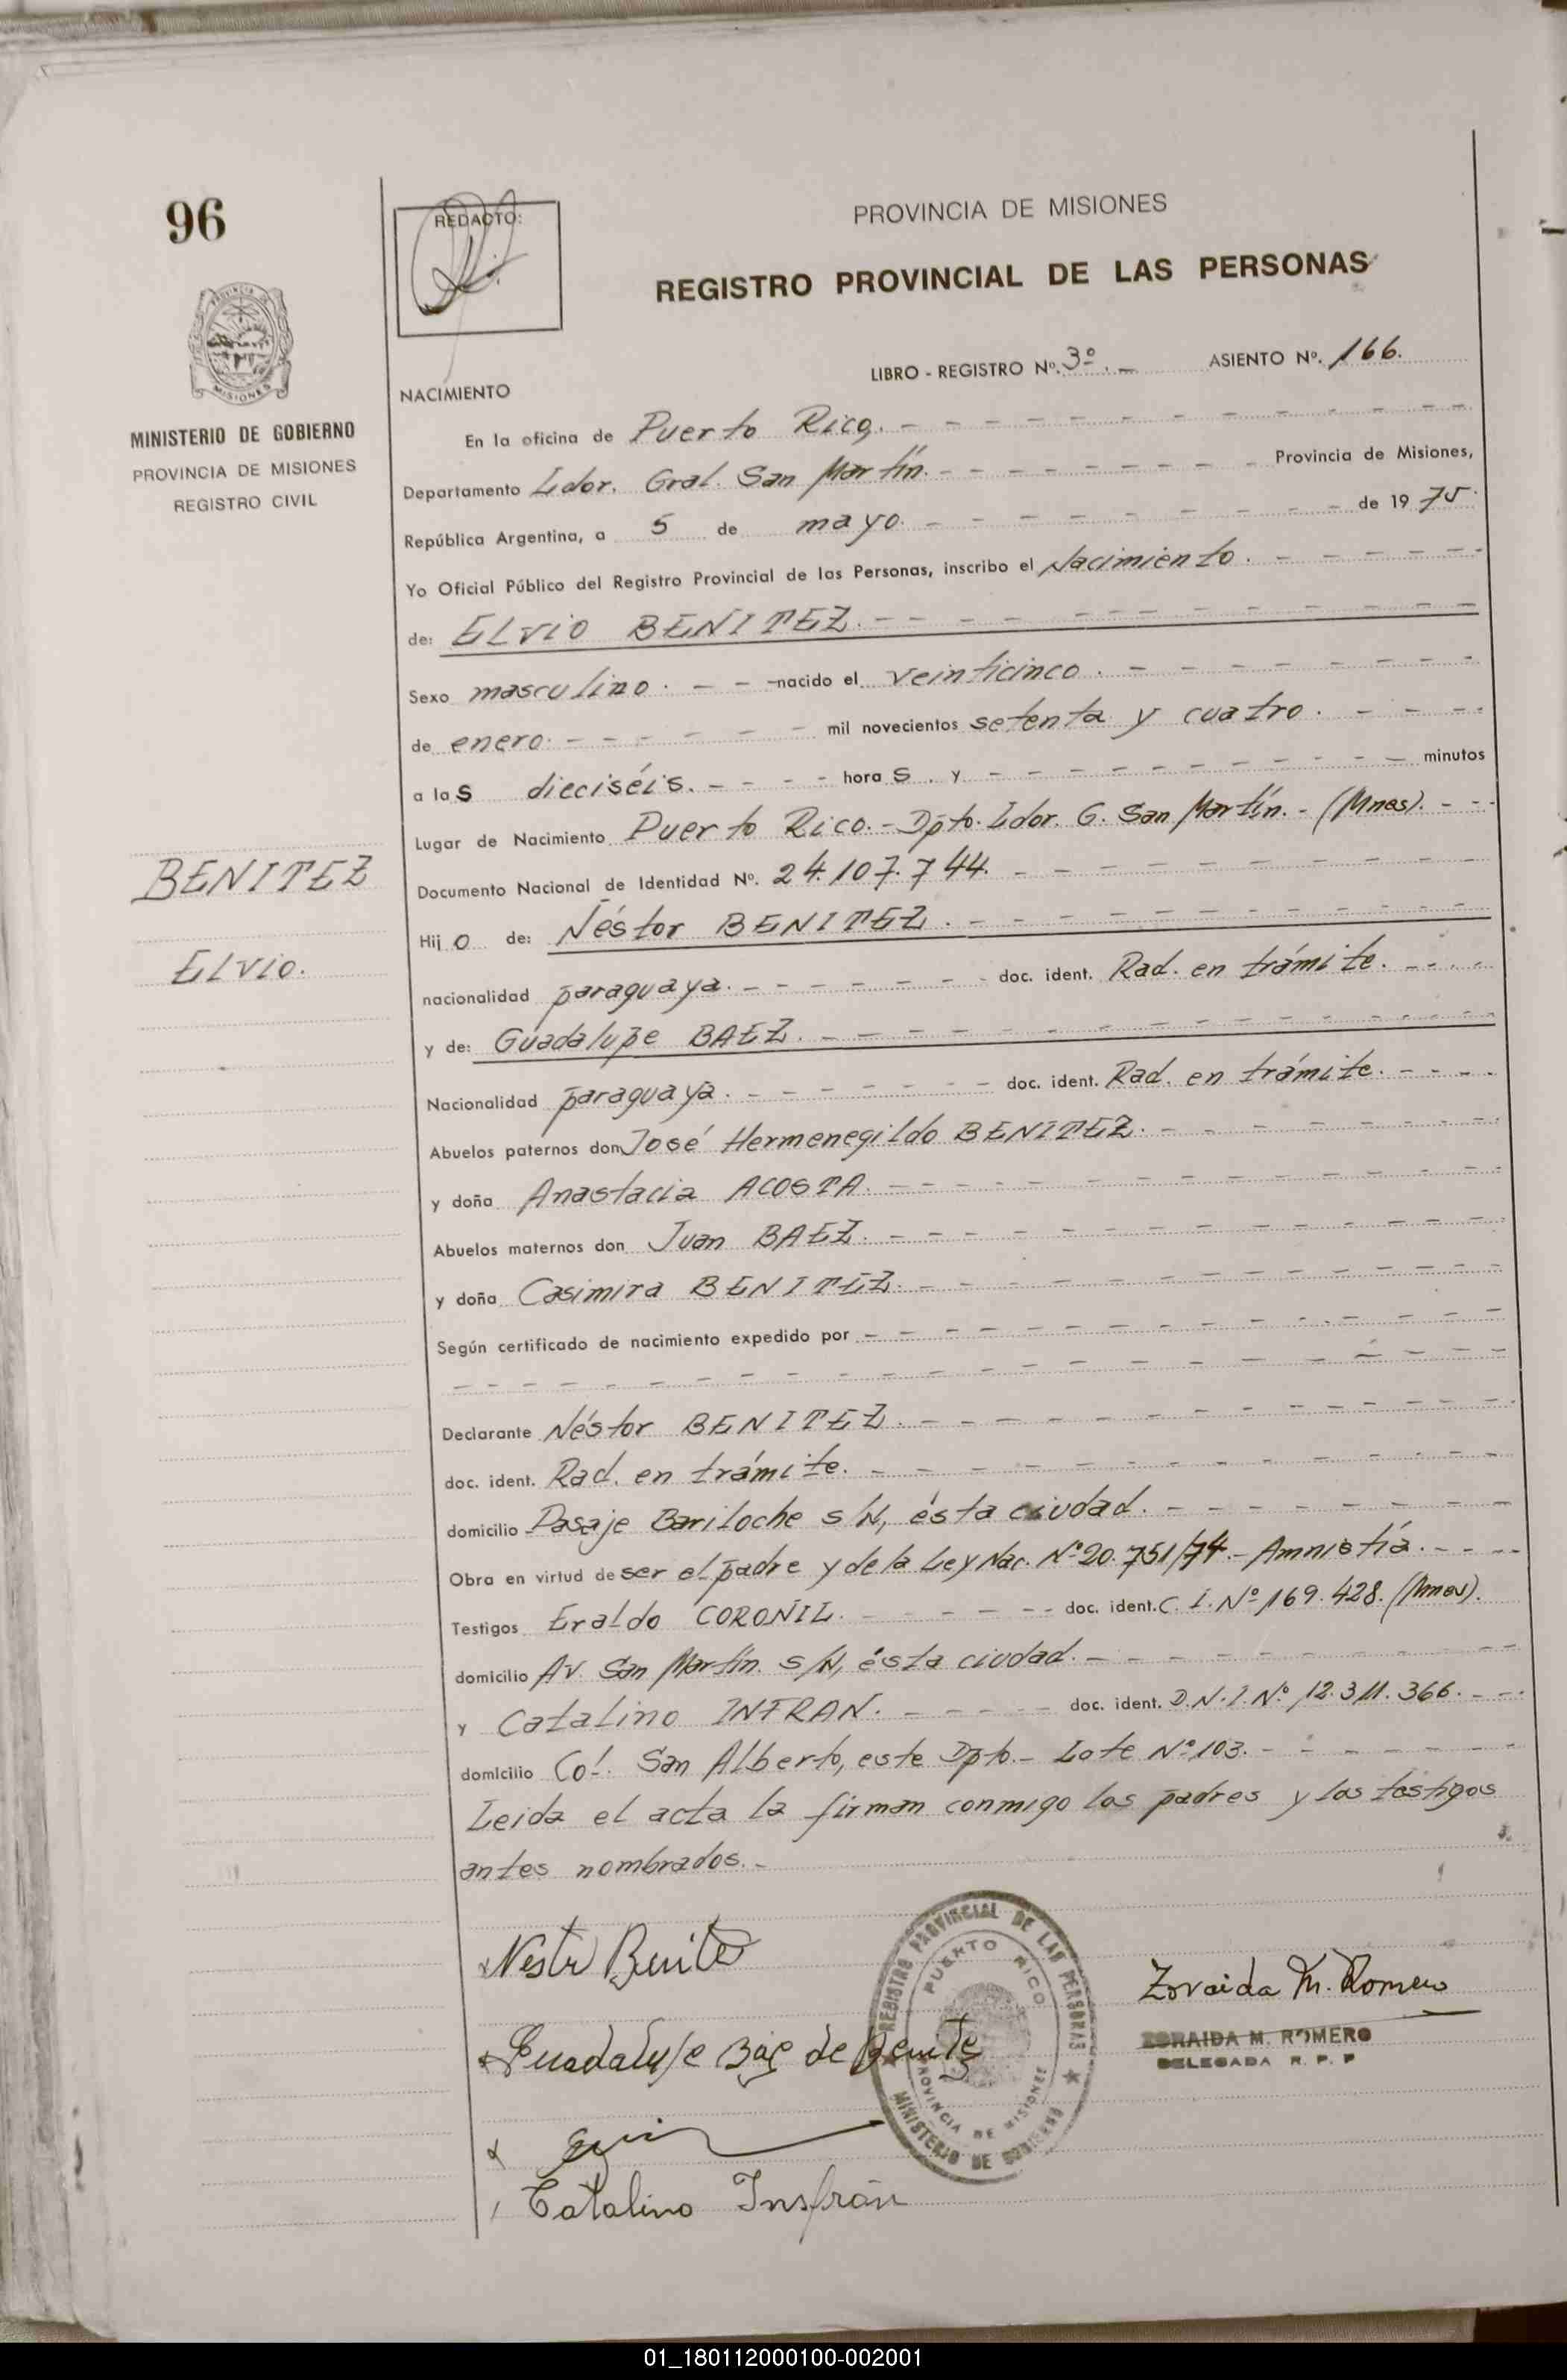 96
REDACTO:
PROVINCIA DE MISIONES
REGISTRO PROVINCIAL DE LAS PERSONAS
LIBRO - REGISTRO Nº. 3º. - ASIENTO Nº. 166.
PROVINCIA DE
MISIONES
MINISTERIO DE GOBIERNO
PROVINCIA DE MISIONES
REGISTRO CIVIL
BENITEZ
ELVIO.
NACIMIENTO
En la oficina de Puerto Rico.
Departamento Ldor. Gral. San Martín. Provincia de Misiones,
República Argentina, a 5 de mayo. de 1975.
Yo Oficial Público del Registro Provincial de las Personas, inscribo el Nacimiento.
de: ELVIO BENITEZ.
Sexo masculino. nacido el veinticinco.
de enero. mil novecientos setenta y cuatro.
a las dieciséis. horas. y minutos
Lugar de Nacimiento Puerto Rico.- Dpto. Ldor. G. San Martín.- (Mnes).
Documento Nacional de Identidad Nº. 24.107.744.
Hijo de: Néstor BENITEZ.
nacionalidad paraguaya. doc. ident. Rad. en trámite.
y de: Guadalupe BAEZ.
Nacionalidad paraguaya. doc. ident. Rad. en trámite.
Abuelos paternos don José Hermenegildo BENITEZ.
y doña Anastacia ACOSTA.
Abuelos maternos don Juan BAEZ.
y doña Casimira BENITEZ.
Según certificado de nacimiento expedido por
Declarante Néstor BENITEZ.
doc. ident. Rad. en trámite.
domicilio Pasaje Bariloche s/N, ésta ciudad.
Obra en virtud de ser el padre y de la Ley Nac. Nº 20.751/74.- Amnistía.
Testigos Eraldo CORONIL. doc. ident. C. I. Nº 169.428. (Mnes).
domicilio Av. San Martín. s/N, ésta ciudad.
y Catalino INFRAN. doc. ident. D.N.I. Nº 12.311.366.
domicilio Col. San Alberto, este Dpto.- Lote Nº 103.
Leida el acta la firman conmigo los padres y los testigos
antes nombrados.-
Nestr Benitez
Guadalupe Baez de Benitez
Catalino Insfrán
REGISTRO PROVINCIAL DE LAS PERSONAS
PUERTO RICO
PROVINCIA DE MISIONES
MINISTERIO DE GOBIERNO
Zoraida M. Romero
ZORAIDA M. ROMERO
DELEGADA R. P. P
01_180112000100-002001